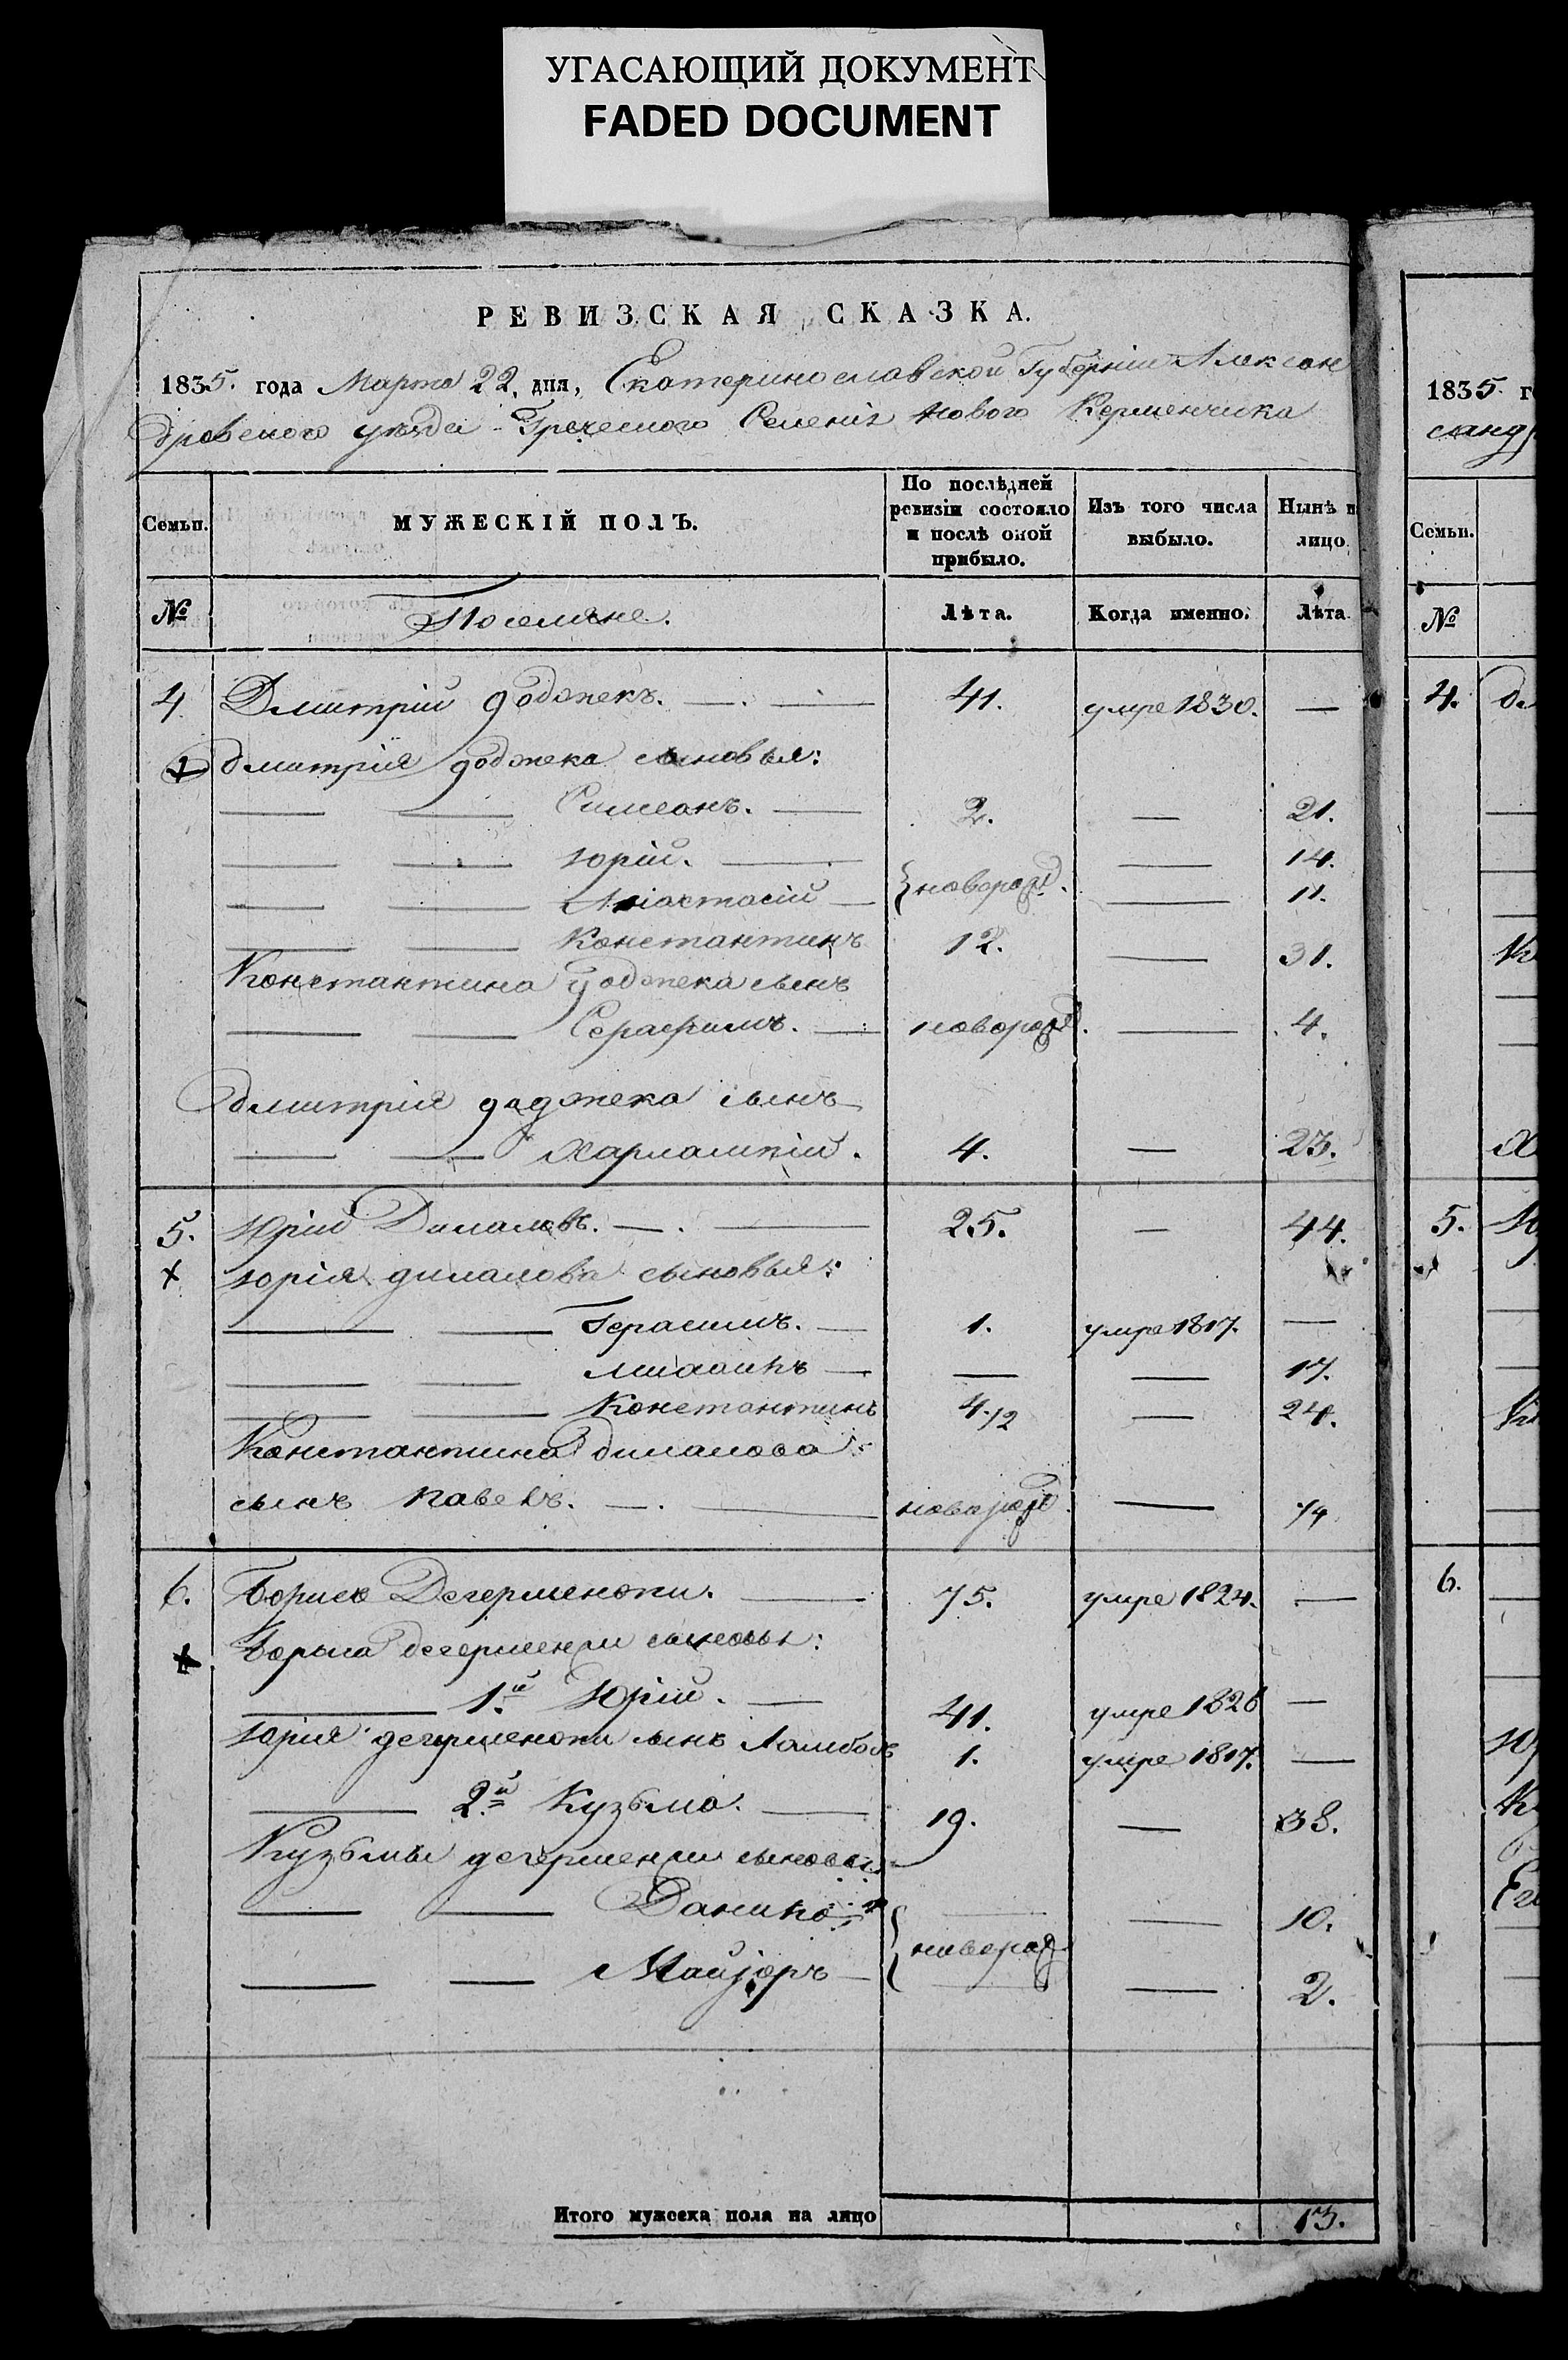 УГАСАЮЩИЙ ДОКУМЕНТ
FADED DOCUMENT
РЕВИЗСКАЯ СКАЗКА.
1835. года Марта 22, дня, Екатеринославской Губерніи Алексан
дровского уѣзда Греческого Селенія Нового Керменчика
Семьи. МУЖЕСКІЙ ПОЛЪ. По послѣдней ревизіи состояло и послѣ оной прибыло. Изъ того числа выбыло. Нынѣ н лицо
№ Поселяне. Лѣта. Когда именно. Лѣта
4 Дмитрій додженъ. — . — 41. умре 1830. —
Дмитрія доджека сыновья:
— — Симеонъ. — 2. — 21.
— — Юрій. — — 14.
— — — } новорожд. — 11.
— — Константинъ 12. — 31.
Константина доджека сынъ
— — Серафимъ. — новорожд. — 4.
Дмитрія доджека сынъ
— — Харлампій. 4. — 23.
5. Юрій Дималовъ. — . — 25. — 44.
x Юрія дималова сыновья:
— — Герасимъ. — 1. умре 1817. —
— — Михаилъ — — — 17.
— — Константинъ 4/12 — 24.
Константина дималова
сынъ Павелъ. — . — новорожд. — 1/4
6. Борисъ Дегерменжи. — 75. умре 1824. —
Бориса дегерменжи сыновья:
— 1.й Юрій. — 41. умре 1826 —
Юрія дегерменжи сынъ Ламбо 1. умре 1817. —
— 2.й Кузьма. — 19. — 38.
Кузьмы дегерменжи сыновья
— — Данило — 10.
— — — { новорожд — 2.
Итого мужеска пола на лицо 13.
1835. г
санд
Семьи.
№
4.
5. Ю
6.